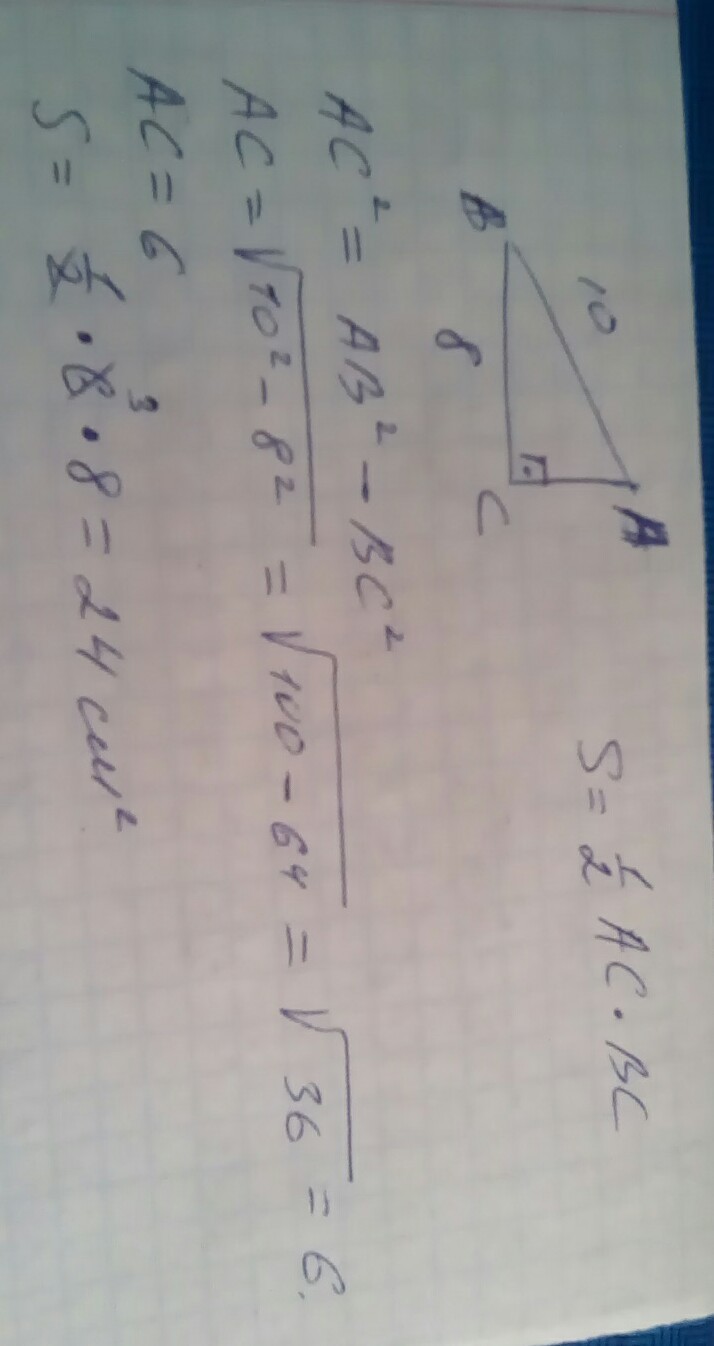 A
10
B
8
C
S = 1/2 AC · BC
AC² = AB² - BC²
AC = √10² - 8² = √100 - 64 = √36 = 6.
AC = 6
S = 1/2 · 6 3 · 8 = 24 см²